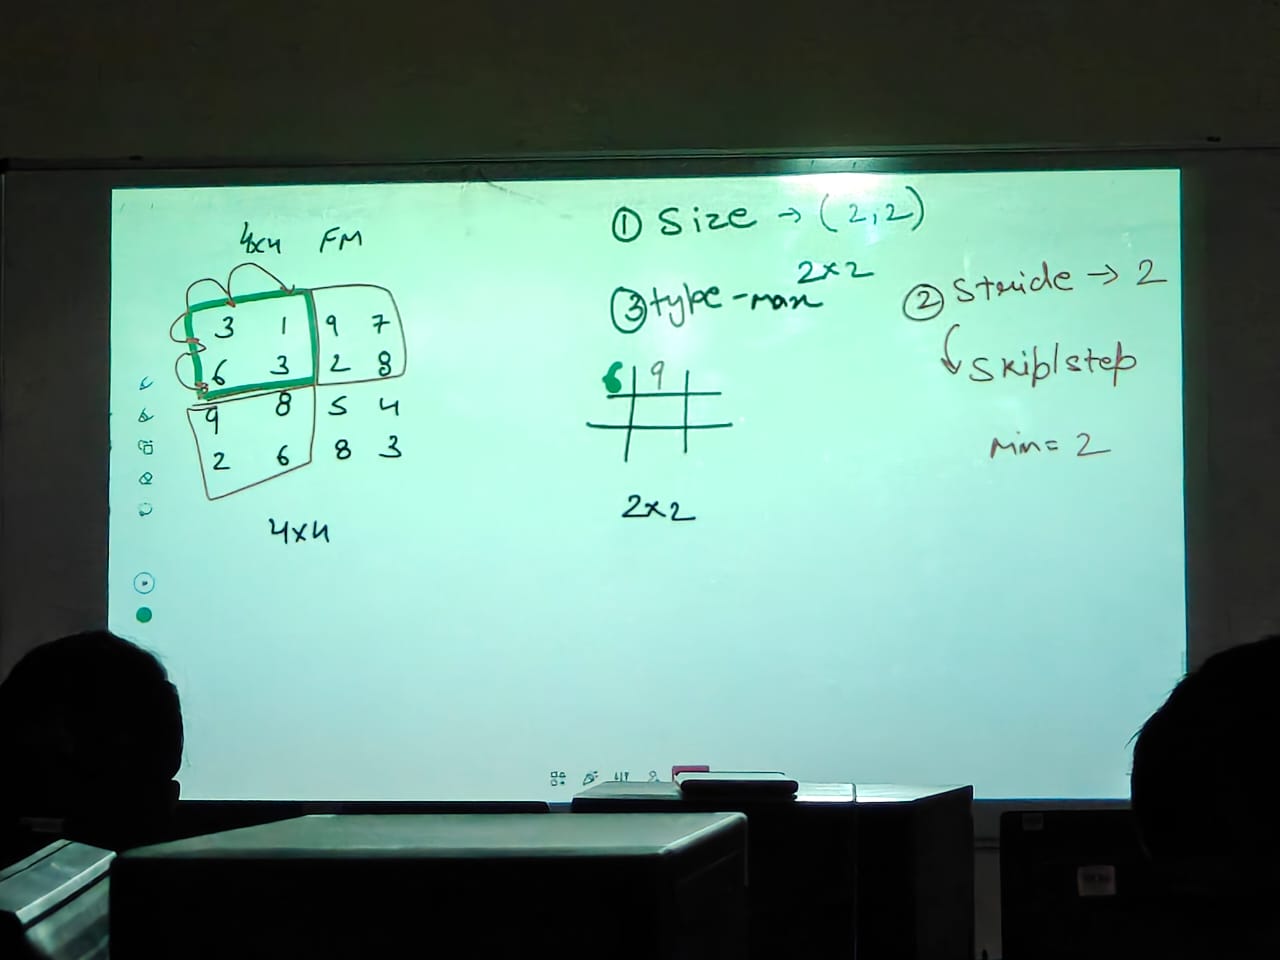 4x4 FM
3 1 9 7
6 3 2 8
9 8 5 4
2 6 8 3
4x4
① Size → (2,2)
2x2
③ type-max
6 9
2x2
② Stride → 2
Skip/step
Min= 2